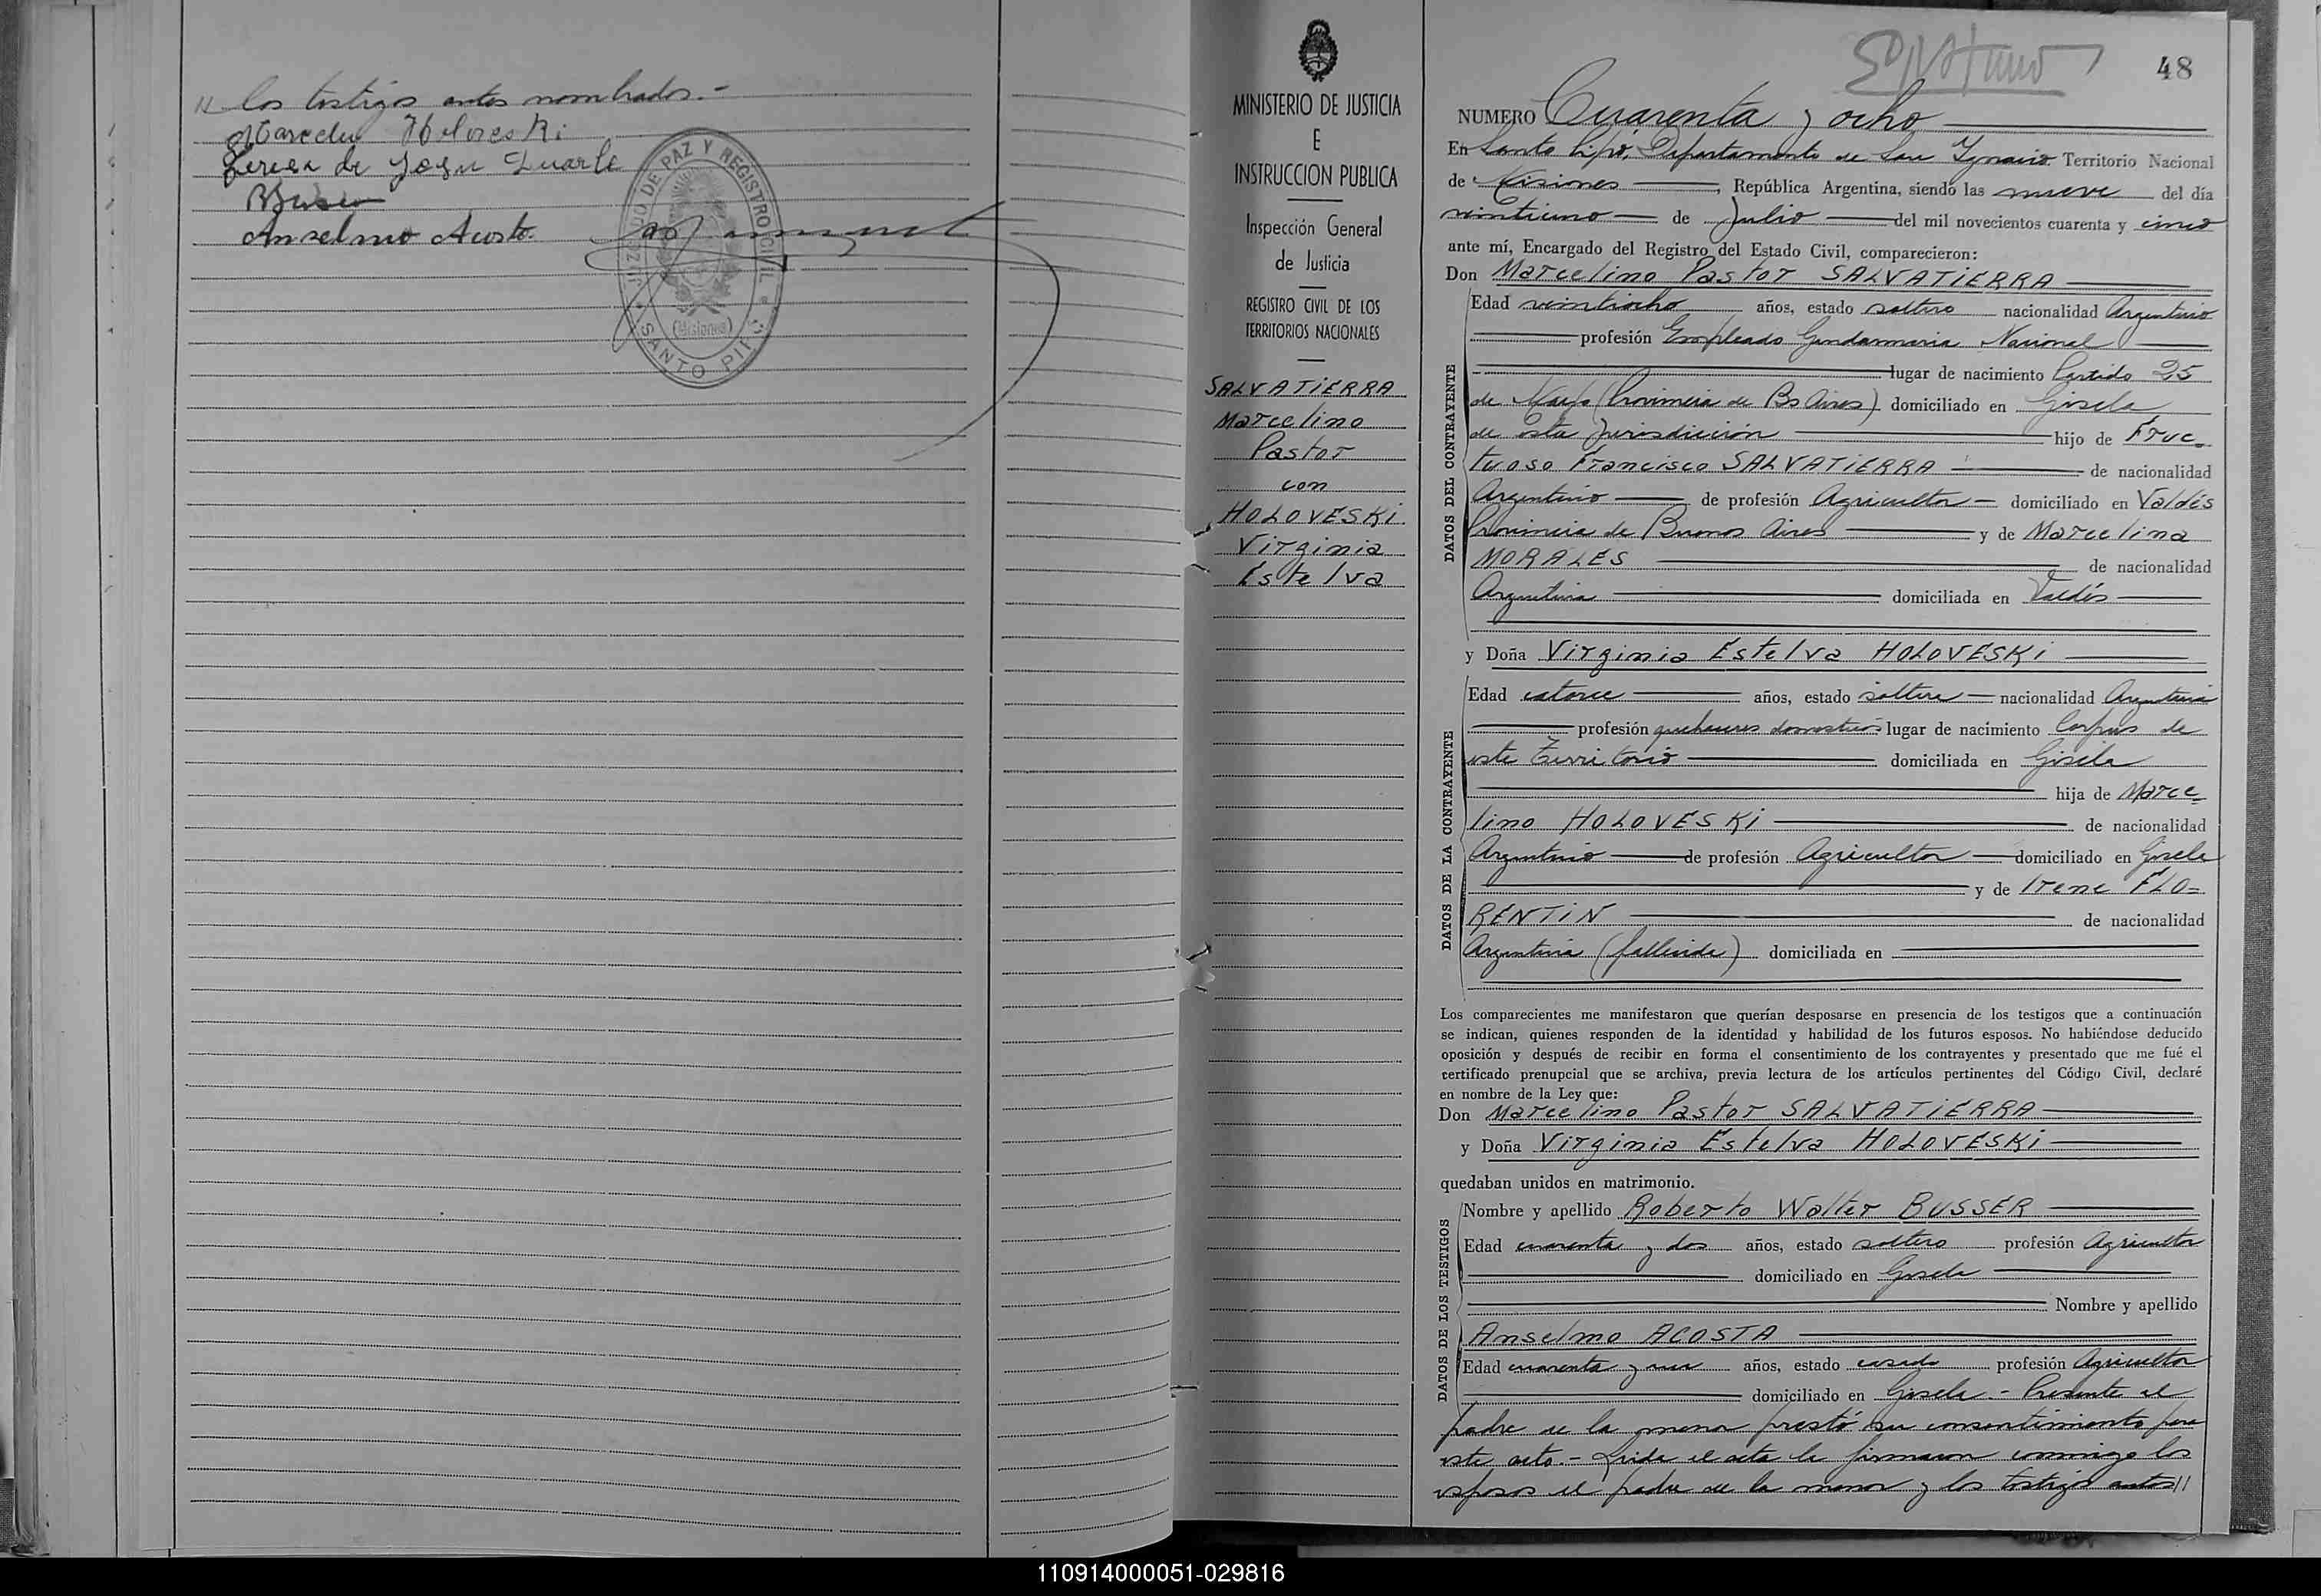 // los testigos antes nombrados.-
Teresa de Jesu Duarte
Busser
Anselmo Acosta
JUZGADO DE PAZ Y REGISTRO CIVIL
(Misiones)
SANTO PIPÓ
MINISTERIO DE JUSTICIA
E
INSTRUCCION PUBLICA
Inspección General
de Justicia
REGISTRO CIVIL DE LOS
TERRITORIOS NACIONALES
SALVATIERRA
Marcelino
Pastor
con
HOLOVESKI
Virginia
Estelva
48
NUMERO Cuarenta y ocho
En Santo Pipó, Departamento de San Ygnacio Territorio Nacional
de Misiones, República Argentina, siendo las nueve del día
veintiuno de Julio del mil novecientos cuarenta y cinco
ante mí, Encargado del Registro del Estado Civil, comparecieron:
Don Marcelino Pastor SALVATIERRA
DATOS DEL CONTRAYENTE
Edad veintiocho años, estado soltero nacionalidad Argentino
profesión Empleado Gendarmeria Nacional
lugar de nacimiento Partido 25
de Mayo (Provincia de Bs Aires) domiciliado en Gisela
de esta Jurisdicción hijo de Fruc-
tuoso Francisco SALVATIERRA de nacionalidad
Argentino de profesión Agricultor domiciliado en Valdés
Provincia de Buenos Aires y de Marcelina
MORALES de nacionalidad
Argentina domiciliada en Valdés
y Doña Virginia Estelva HOLOVESKI
DATOS DE LA CONTRAYENTE
Edad catorce años, estado soltera nacionalidad Argentina
profesión quehaceres domesticos lugar de nacimiento Corpus de
este Territorio domiciliada en Gisela
hija de Marce-
lino HOLOVESKI de nacionalidad
Argentino de profesión Agricultor domiciliado en Gisela
y de Irene FLO-
RENTIN de nacionalidad
Argentina (fallecida) domiciliada en
Los comparecientes me manifestaron que querían desposarse en presencia de los testigos que a continuación
se indican, quienes responden de la identidad y habilidad de los futuros esposos. No habiéndose deducido
oposición y después de recibir en forma el consentimiento de los contrayentes y presentado que me fué el
certificado prenupcial que se archiva, previa lectura de los artículos pertinentes del Código Civil, declaré
en nombre de la Ley que:
Don Marcelino Pastor SALVATIERRA
y Doña Virginia Estelva HOLOVESKI
quedaban unidos en matrimonio.
DATOS DE LOS TESTIGOS
Nombre y apellido Roberto Walter BUSSER
Edad cuarenta y dos años, estado soltero profesión Agricultor
domiciliado en Gisela
Nombre y apellido
Anselmo ACOSTA
Edad cuarenta y un años, estado casado profesión Agricultor
domiciliado en Gisela.- Presente el
padre de la menor prestó su consentimiento para
este acto.- Leida el acta la firmaron conmigo los
esposos el padre de la menor y los testigos antes//
110914000051-029816